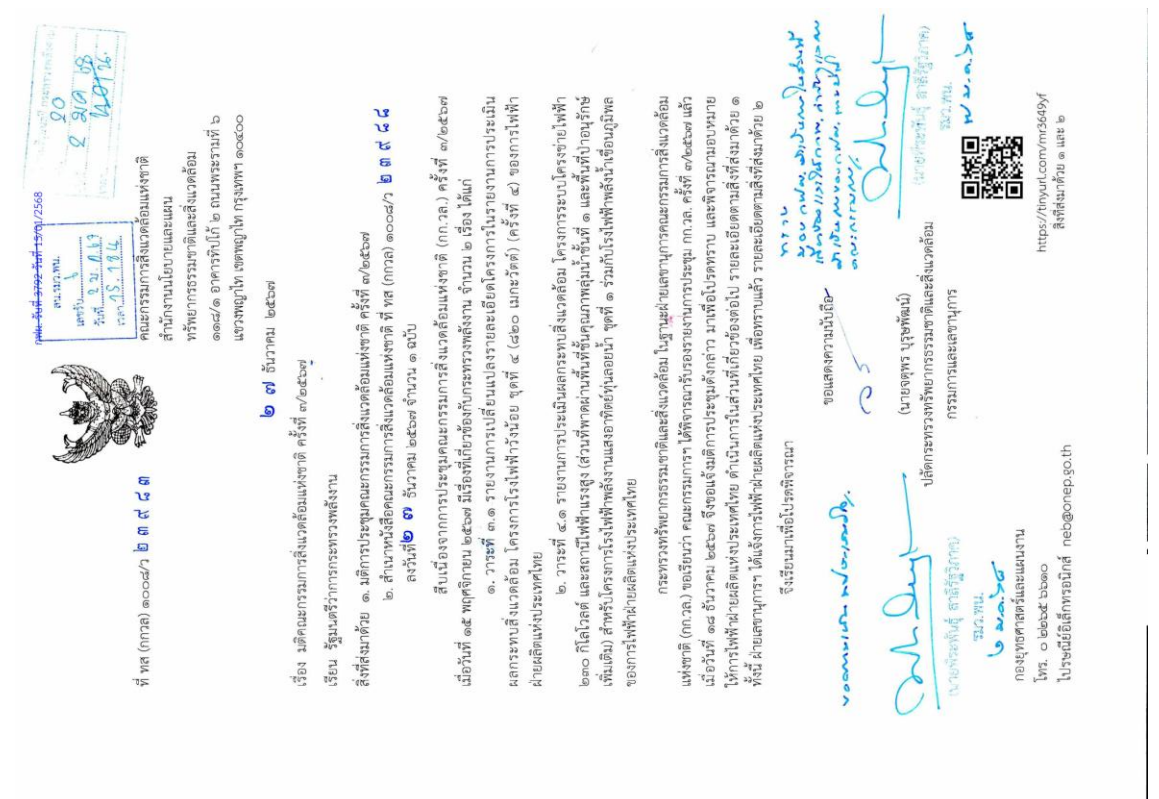 กฟผ. รับที่ 3792 วันที่ 13/01/2568
สน.รมว.พน.
เลขรับ
วันที่
เวลา
ที่ ทส (กกวล) ๑๐๐๘/ว ๒๓๙๘๓
คณะกรรมการสิ่งแวดล้อมแห่งชาติ
สำนักงานนโยบายและแผน
ทรัพยากรธรรมชาติและสิ่งแวดล้อม
๑๑๘/๑ อาคารทิปโก้ ๒ ถนนพระรามที่ ๖
แขวงพญาไท เขตพญาไท กรุงเทพฯ ๑๐๔๐๐
๒๗ ธันวาคม ๒๕๖๗
เรื่อง มติคณะกรรมการสิ่งแวดล้อมแห่งชาติ ครั้งที่ ๓/๒๕๖๗
เรียน รัฐมนตรีว่าการกระทรวงพลังงาน
สิ่งที่ส่งมาด้วย ๑. มติการประชุมคณะกรรมการสิ่งแวดล้อมแห่งชาติ ครั้งที่ ๓/๒๕๖๗
๒. สำเนาหนังสือคณะกรรมการสิ่งแวดล้อมแห่งชาติ ที่ ทส (กกวล) ๑๐๐๘/ว ๒๓๙๘๘
ลงวันที่ ๒๗ ธันวาคม ๒๕๖๗ จำนวน ๑ ฉบับ
สืบเนื่องจากการประชุมคณะกรรมการสิ่งแวดล้อมแห่งชาติ (กก.วล.) ครั้งที่ ๓/๒๕๖๗
เมื่อวันที่ ๑๕ พฤศจิกายน ๒๕๖๗ มีเรื่องที่เกี่ยวข้องกับกระทรวงพลังงาน จำนวน ๒ เรื่อง ได้แก่
๑. วาระที่ ๓.๑ รายงานการเปลี่ยนแปลงรายละเอียดโครงการในรายงานการประเมิน
ผลกระทบสิ่งแวดล้อม โครงการโรงไฟฟ้าวังน้อย ชุดที่ ๔ (๘๒๐ เมกะวัตต์) (ครั้งที่ ๔) ของการไฟฟ้า
ฝ่ายผลิตแห่งประเทศไทย
๒. วาระที่ ๔.๑ รายงานการประเมินผลกระทบสิ่งแวดล้อม โครงการระบบโครงข่ายไฟฟ้า
๒๓๐ กิโลโวลต์ และสถานีไฟฟ้าแรงสูง (ส่วนที่พาดผ่านพื้นที่ชั้นคุณภาพลุ่มน้ำชั้นที่ ๑ และพื้นที่ป่าอนุรักษ์
เพิ่มเติม) สำหรับโครงการโรงไฟฟ้าพลังงานแสงอาทิตย์ทุ่นลอยน้ำ ชุดที่ ๑ ร่วมกับโรงไฟฟ้าพลังน้ำเขื่อนภูมิพล
ของการไฟฟ้าฝ่ายผลิตแห่งประเทศไทย
กระทรวงทรัพยากรธรรมชาติและสิ่งแวดล้อม ในฐานะฝ่ายเลขานุการคณะกรรมการสิ่งแวดล้อม
แห่งชาติ (กก.วล.) ขอเรียนว่า คณะกรรมการฯ ได้พิจารณารับรองรายงานการประชุม กก.วล. ครั้งที่ ๓/๒๕๖๗ แล้ว
เมื่อวันที่ ๑๘ ธันวาคม ๒๕๖๗ จึงขอแจ้งมติการประชุมดังกล่าว มาเพื่อโปรดทราบ และพิจารณามอบหมาย
ให้การไฟฟ้าฝ่ายผลิตแห่งประเทศไทย ดำเนินการในส่วนที่เกี่ยวข้องต่อไป รายละเอียดตามสิ่งที่ส่งมาด้วย ๑
ทั้งนี้ ฝ่ายเลขานุการฯ ได้แจ้งการไฟฟ้าฝ่ายผลิตแห่งประเทศไทย เพื่อทราบแล้ว รายละเอียดตามสิ่งที่ส่งมาด้วย ๒
จึงเรียนมาเพื่อโปรดพิจารณา
ขอแสดงความนับถือ
(นายจตุพร บุรุษพัฒน์)
ปลัดกระทรวงทรัพยากรธรรมชาติและสิ่งแวดล้อม
กรรมการและเลขานุการ
ทราบ
(นายพีระพันธุ์ สาลีรัฐวิภาค)
รมว.พน.
(นายพีระพันธุ์ สาลีรัฐวิภาค)
รมว.พน.
กองยุทธศาสตร์และแผนงาน
โทร. ๐ ๒๒๖๕ ๖๖๑๐
ไปรษณีย์อิเล็กทรอนิกส์ neb@onep.go.th
https://tinyurl.com/mr3649yf
สิ่งที่ส่งมาด้วย ๑ และ ๒